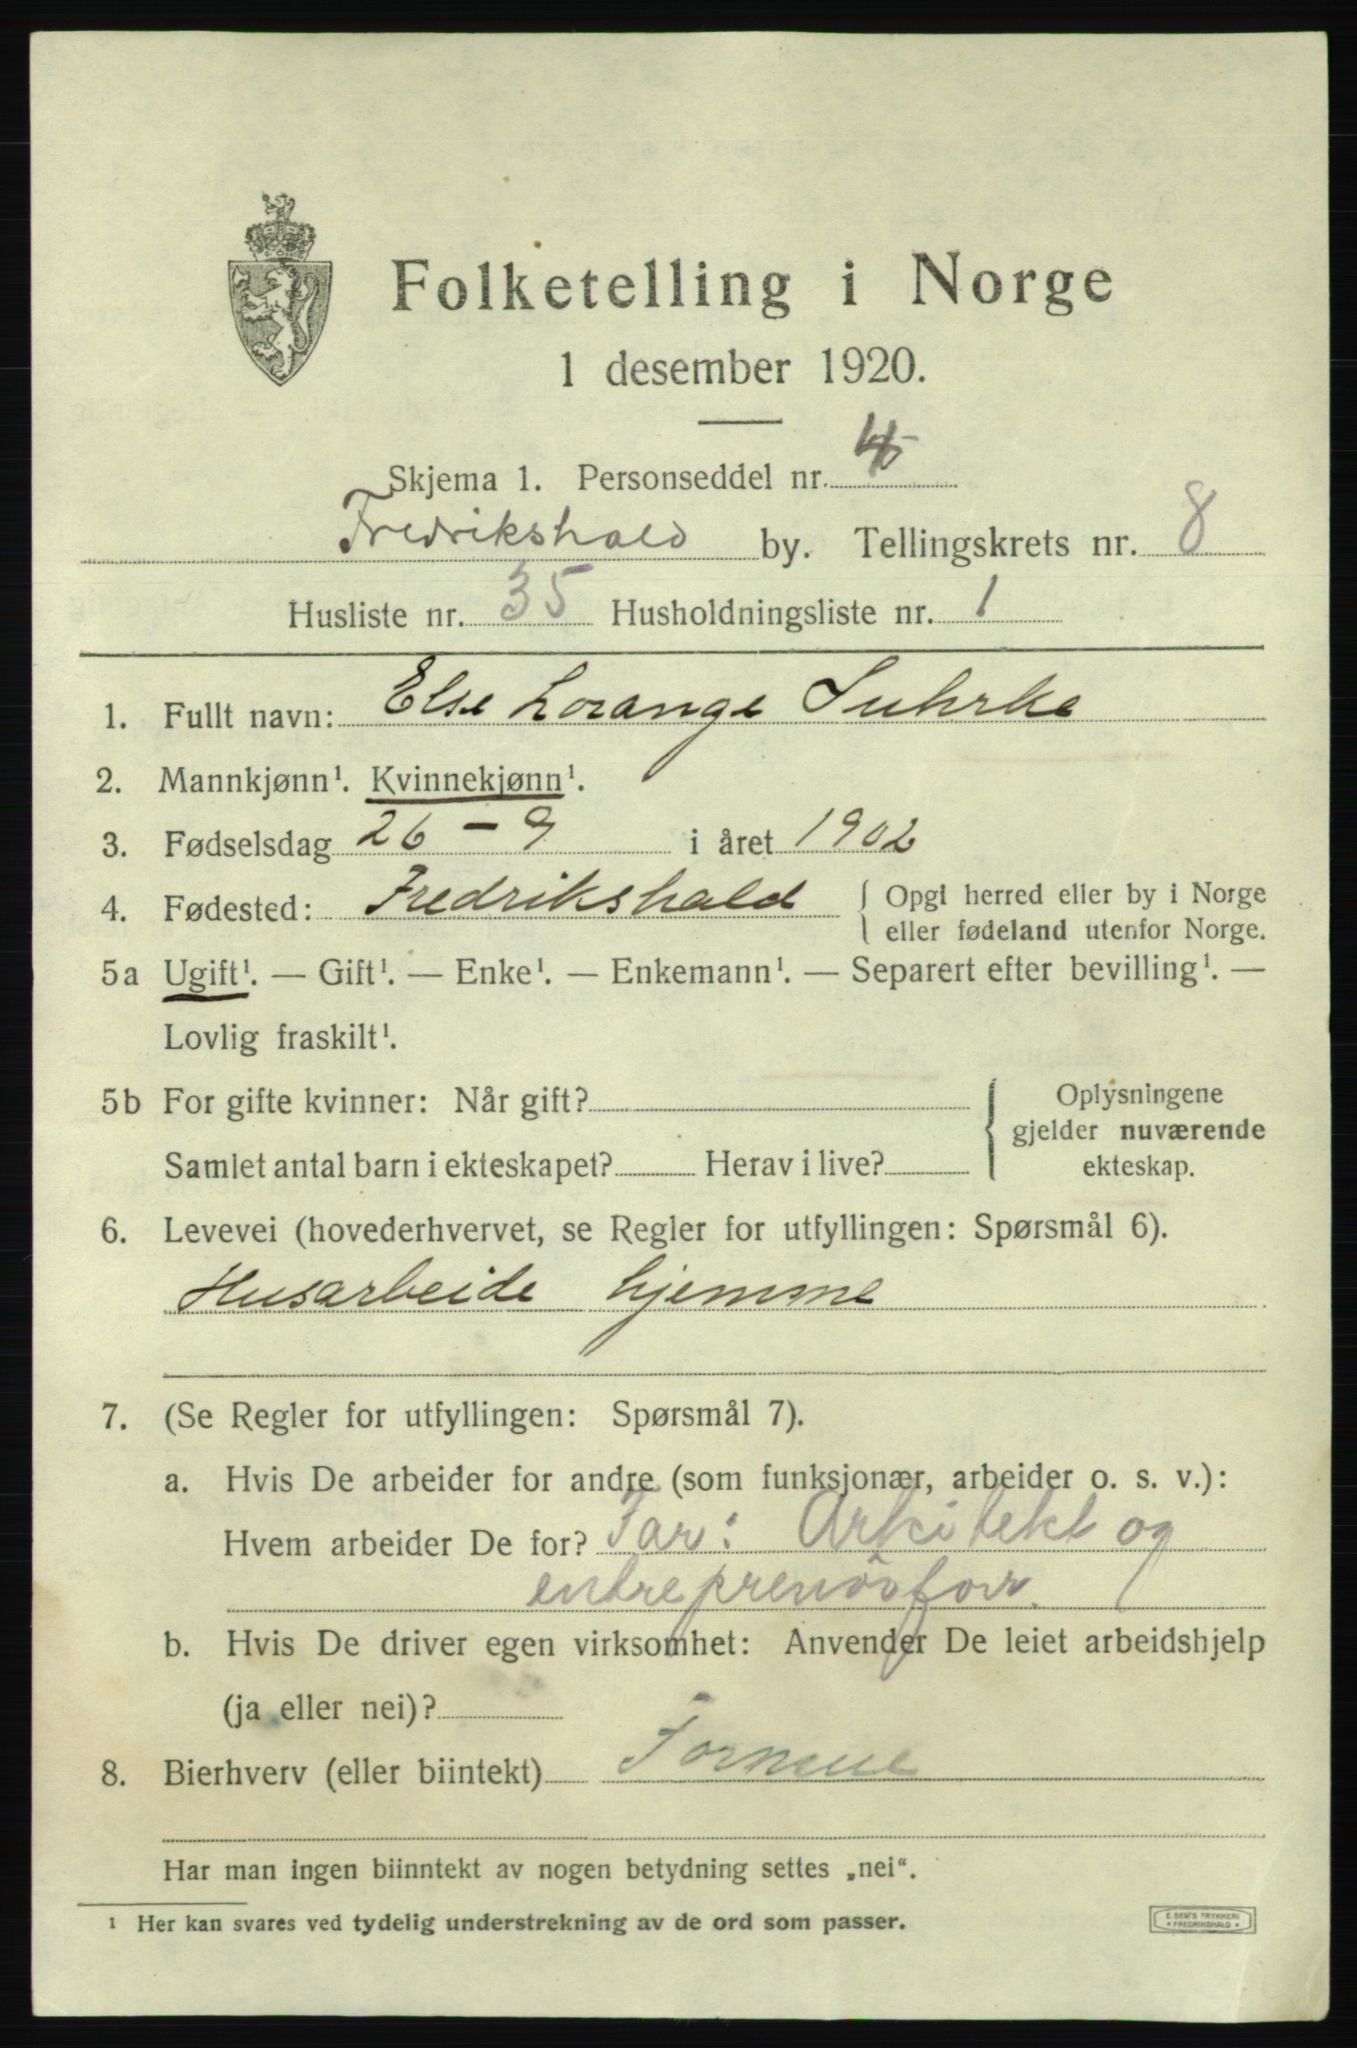 Folketelling i Norge
1 desember 1920.
Skjema 1. Personseddel nr. 4
Fredrikshald by. Tellingskrets nr. 8
Husliste nr. 35 Husholdningsliste nr. 1
1. Fullt navn: Else Lorange Suhrke
2. Mannkjønn¹. Kvinnekjønn¹.
3. Fødselsdag 26 - 9 i året 1902
4. Fødested: Fredrikshald { Opgi herred eller by i Norge
eller fødeland utenfor Norge.
5a Ugift¹. — Gift¹. — Enke¹. — Enkemann¹. — Separert efter bevilling¹. —
Lovlig fraskilt¹.
5b For gifte kvinner: Når gift? { Oplysningene
gjelder nuværende
Samlet antal barn i ekteskapet? Herav i live? ekteskap.
6. Levevei (hovederhvervet, se Regler for utfyllingen: Spørsmål 6).
Husarbeide hjemme
7. (Se Regler for utfyllingen: Spørsmål 7).
a. Hvis De arbeider for andre (som funksjonær, arbeider o. s. v.):
Hvem arbeider De for? Far: Arkitekt og
entreprenør
b. Hvis De driver egen virksomhet: Anvender De leiet arbeidshjelp
(ja eller nei)?
8. Bierhverv (eller biintekt) Formue
Har man ingen biinntekt av nogen betydning settes „nei“.
¹ Her kan svares ved tydelig understrekning av de ord som passer.
E. SEM'S TRYKKERI
• FREDRIKSHALD •